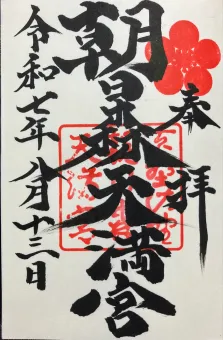 奉拝
朝日森天満宮
令和七年八月十三日